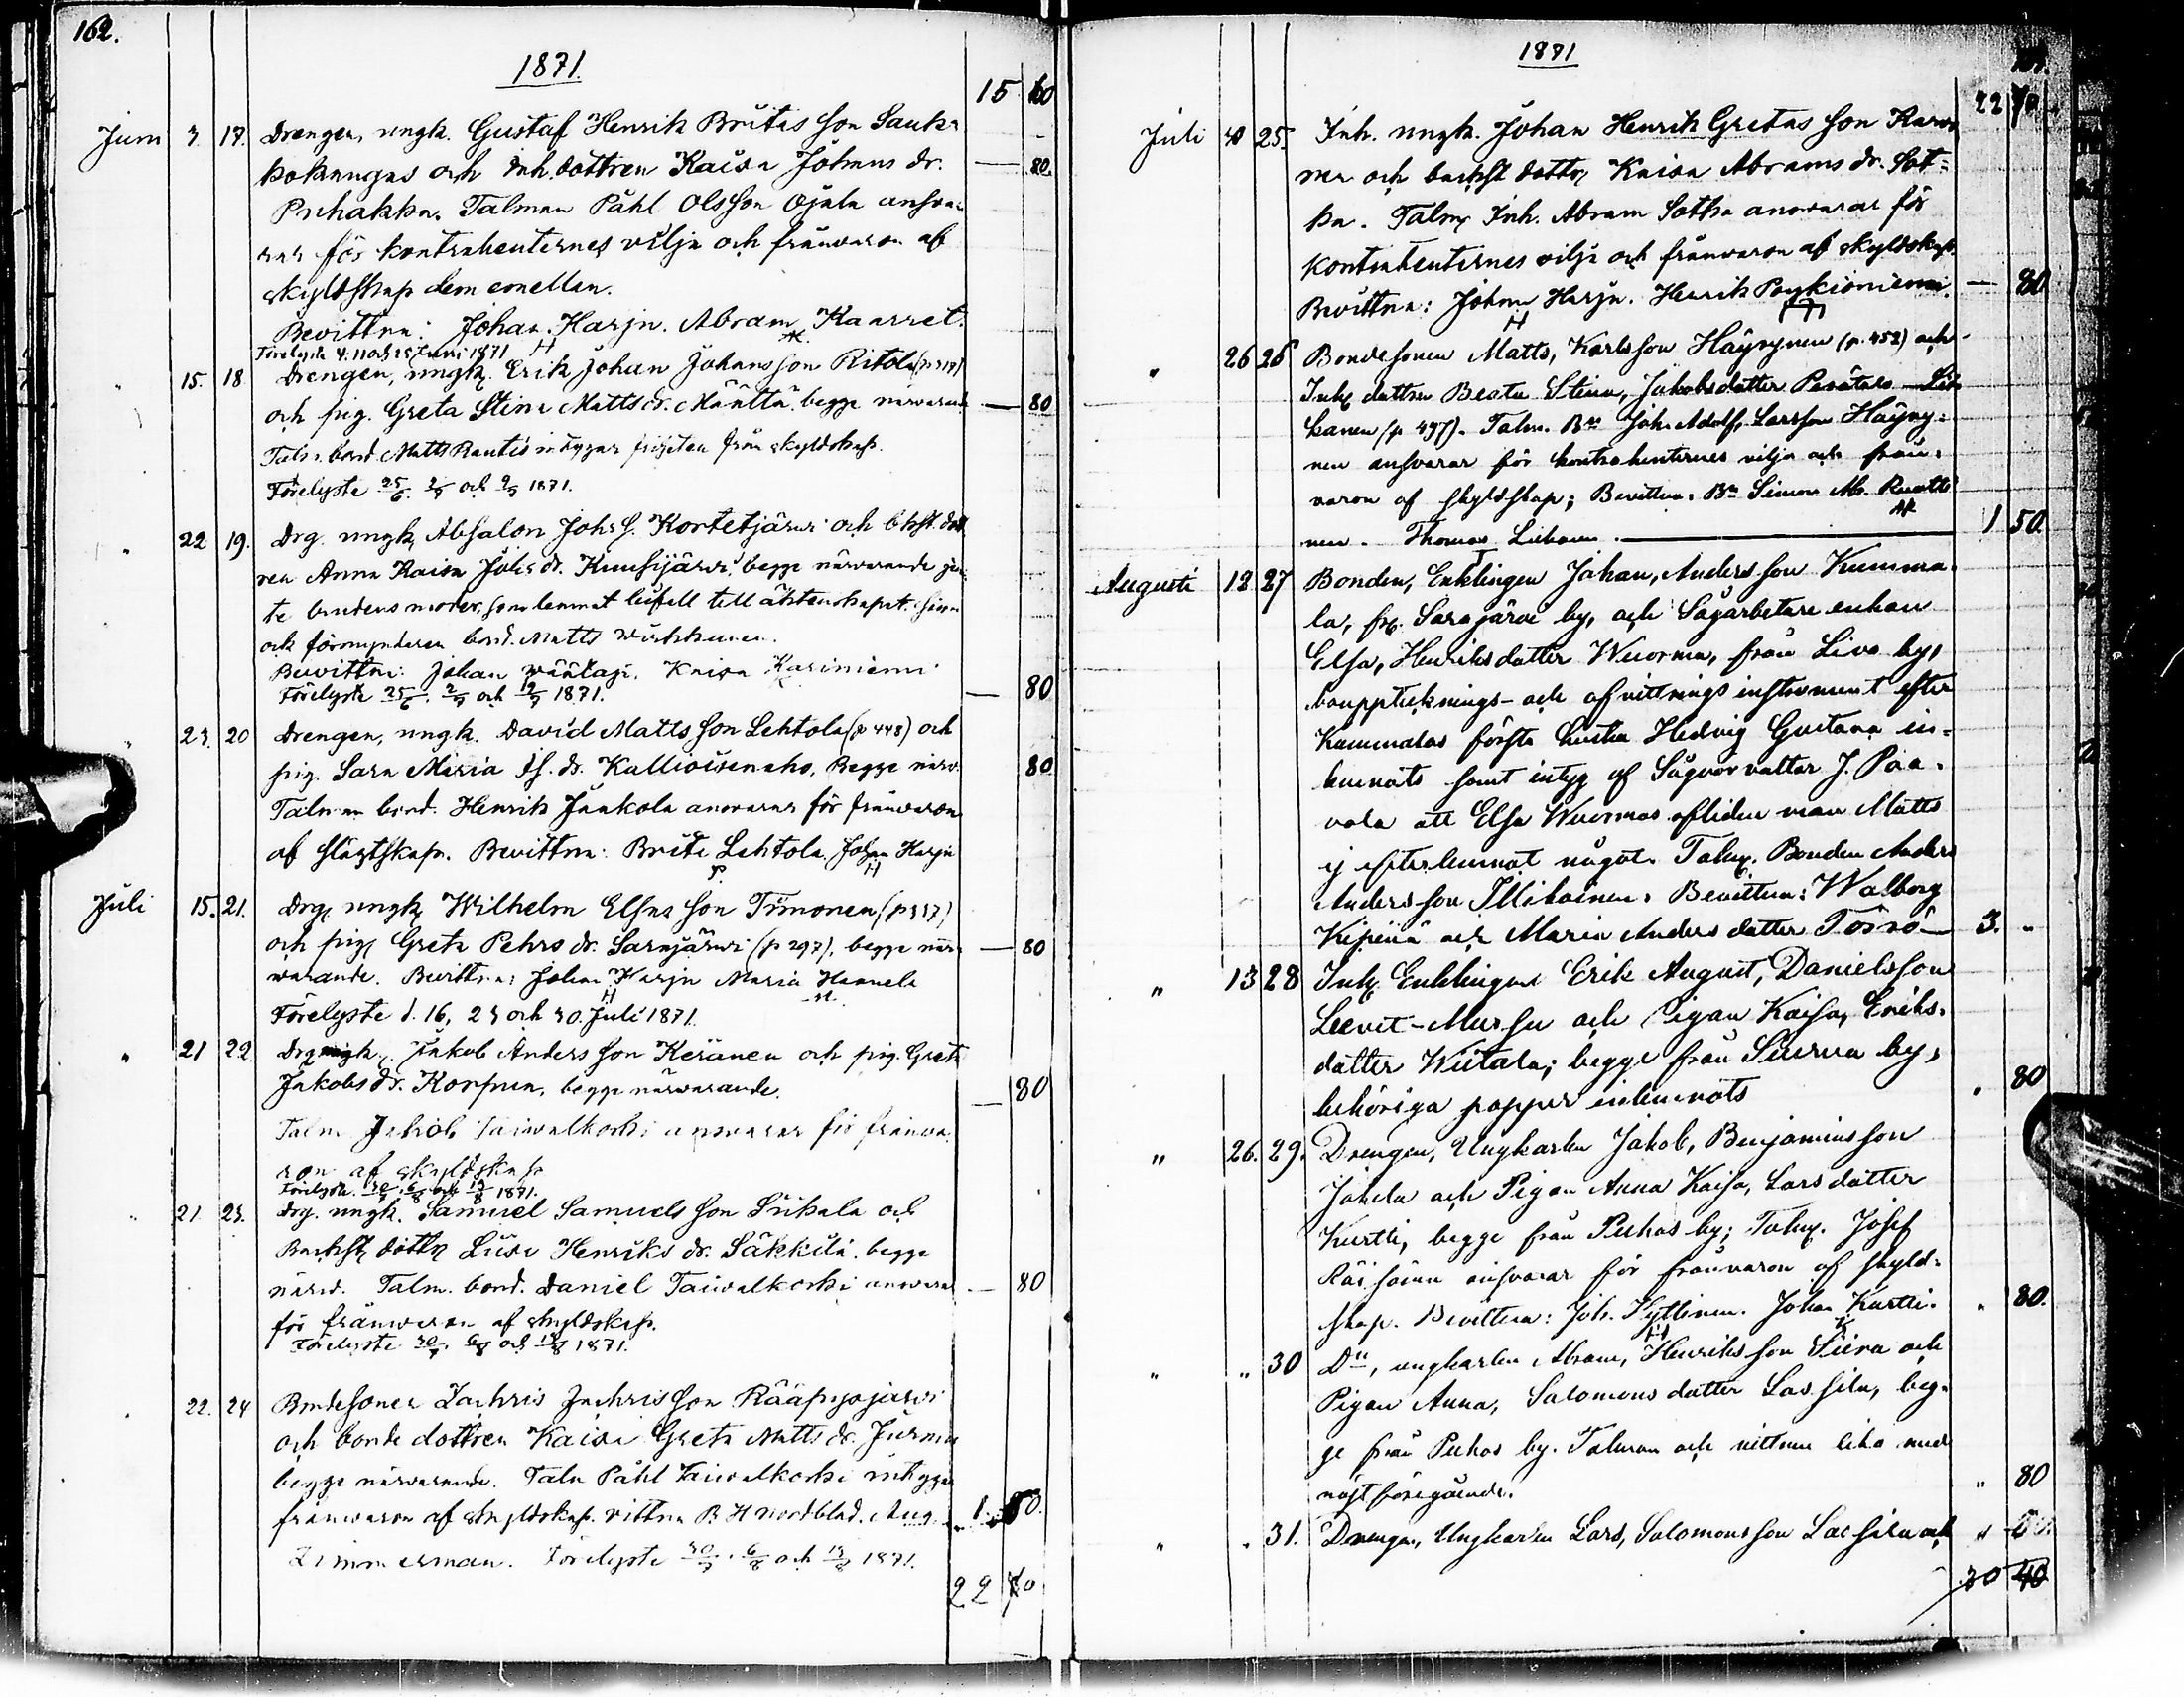 162.
1871.
15 60
Juni 3. 17. Drengen, ungk. Gustaf Henrik Britas son Saukko
kokangas och Inh. dottren Kaisa Johans dr. — 80.
Puhakka. Talman Påhl Olsson Ojala ansva-
rar för kontrahenternes vilja och frånvaron af
skyldskap dem emellan.
Bevittna: Johan Harju. Abram Kaarret.
Förelyste 4. 11 och 25 Juni 1871
" 15. 18. Drengen, ungk. Erik Johan Johansson Ritola
och pig. Greta Stina Matts dr. Mänttä. begge närvarande — 80
Talm. bond. Matts Rautio intygar friheten från skyldskap.
Förelyste 25/6. 2/7 och 9/7 1871.
" 22 19. Drg. ungk, Absalon Johs S. Kortetjärwi och bkst. dott
ren Anna Kaisa Johs dr. Kuusijärwi, begge närvarande jem
te brudens moder, som lemnat bifall till äktenskapet.
och förmyndaren bond. Matts
Bevittna: Johan Kaisa Kariniemi
Förelyste 25/6. 2/7 och 1871. — 80
" 23. 20 Drengen, ungk. David Matts son Lehtola (p 448) och
pig. Sara Maria Is. dr. Kallioisenaho, Begge närv. 80
Talman bond. Henrik Jaakola answarar för frånvaron
af slägtskap. Bevittna: Brita Lehtola. Johan Harju
Juli 15. 21. Drg, ungk, Wilhelm Elsas son Timonen
och pig, Greta Pehrs dr. Sarajärwi (p 297), begge när- — 80
warande. Bevittna: Johan Harju Maria Hannela
Förelyste d. 16, 23 och 30. Juli 1871.
" 21 22. Drg ungk. Jakob Anders son Keränen och pig. Greta
Jakobs dr. Korpua, begge närwarande. — 80
Talm Jakob Taiwalkoski answarar för frånva-
ron af skyldskap
Förelyste. 30/7. 6/8 och 13/8 1871.
" 21. 23. Drg. ungk. Samuel Samuels son Siikala och
Backst, dottr, Liisa Henriks dr. Säkkilä. begge
närvd. Talm. bond. Daniel Taiwalkoski answarar — 80
för frånvaron af skyldskap.
Förelyste 30/7. 6/8 och 13/8 1871.
22. 24 Bondesonen Zachris Zachris son Rääpysjärwi
och bonde dottren Kaisa Greta Matts dr. Jurmu
begge närwarande. Talm Påhl Taiwalkoski intygar
frånwaron af skyldskap. vittna B H Nordblad. Aug. 1. 50.
Zimmerman. Förelyste 30/7. 6/8 och 13/8 1871.
22 70
1871
22 70
Juli 25. Inh. ungk. Johan Henrik Gretas son
och backst dottr, Kaisa Abrams dr. Sot-
ka. Talm, Inh. Abram Sotka answarar för
kontrahenternes vilja och frånvaron af skyldskap.
Bevittna: Johan Harju. Henrik Poykioniemi. — 80
" 26 26 Bondesonen Matts, Karlsson Häyrynen (p. 452) och
Inh, dottren Beata Stina, Jakobsdotter Perätalo - Lii-
kanen (p 497). Talm. Bn Joh. Adolf, Larsson Häyry-
nen ansvarar för kontrahenternes vilja och från-
varon af skyldskap; Bevittna: Bn Simon
nen. Thomas Liikanen. — 1 50.
Augusti 12 27 Bonden, Enklingen Johan, Andersson Kumma-
la, fr. Sarajärvi by, och Sågarbetare enkan
Elsa, Henriksdotter Wuorma, från Livo by,
boupptecknings- och afvittrings instrument efter
Kummalas första hustru Hedvig Gustava in-
lemnats samt intyg af Sågvorvaltar J. Paa-
vola att Elsa Wuormas aflidne man Matts
ej efterlemnat något. Talm. Bonden Anders
Andersson Illikainen. Bevittna: Walborg
och Maria Anders dotter Törrö — 3. "
" 13 28 Inh, Enklingen Erik August, Danielsson
Leevit-Mursu och Pigan Kaisa, Eriks-
dotter Wiitala; begge från Siurua by,
behöriga papper inlemnats " 80
" 26. 29. Drengen, Ungkarlen Jakob, Benjaminsson
Jokela och Pigan Anna Kaisa, Larsdotter
Kurtti, begge från Puhos by; Talm. Josef
Räisänen ansvarar för frånvaron af skyld-
skap. Bevittna: Joh. Hyttinen. Johan Kurtti. " 80.
" " 30 Dn, ungkarlen Abram, Henriksson Siira och
Pigan Anna, Salomons dotter Lassila, beg-
ge från Puhos by. Talman och vittnen lika med
näst föregående. " 80
" " 31. Drengen, Ungkarlen Lars, Salomonsson Lassila och
30 40